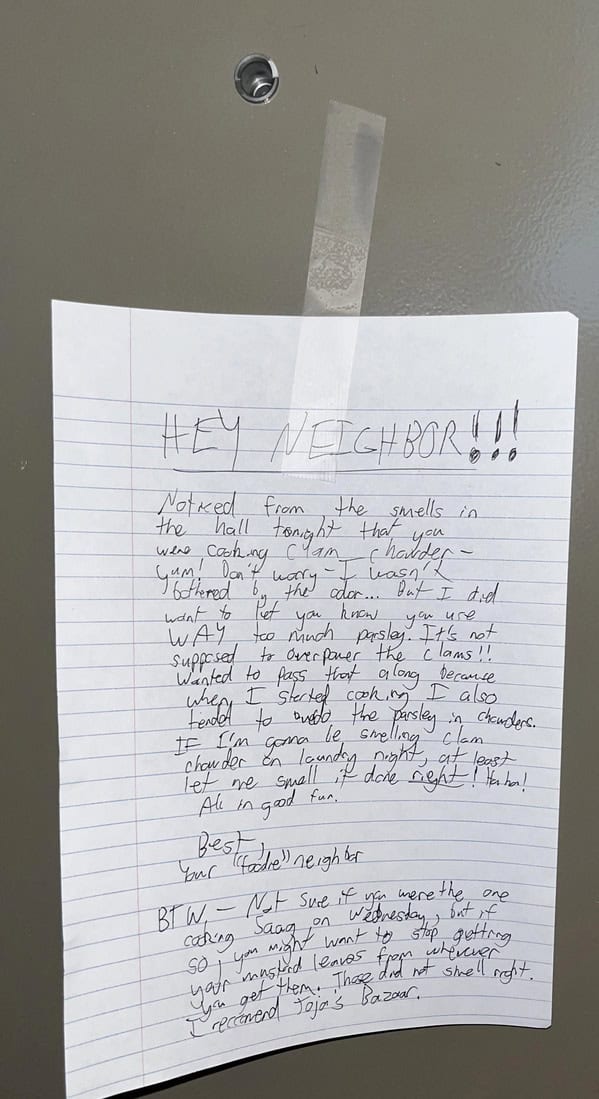 HEY NEIGHBOR!!!
Noticed from the smells in
the hall tonight that you
were cooking clam chowder –
yum! Don't worry – I wasn't
bothered by the odor... But I did
want to let you know you use
WAY too much parsley. It's not
supposed to overpower the clams!!
Wanted to pass that along because
when I started cooking I also
tended to overdo the parsley in chowders.
If I'm gonna be smelling clam
chowder on laundry night, at least
let me smell it done right! Haha!
All in good fun.
Best,
Your "foodie" neighbor
BTW – Not sure if you were the one
cooking Saag on Wednesday, but if
so, you might want to stop getting
your mustard leaves from wherever
you get them. Those did not smell right.
I recommend Joja's Bazaar.